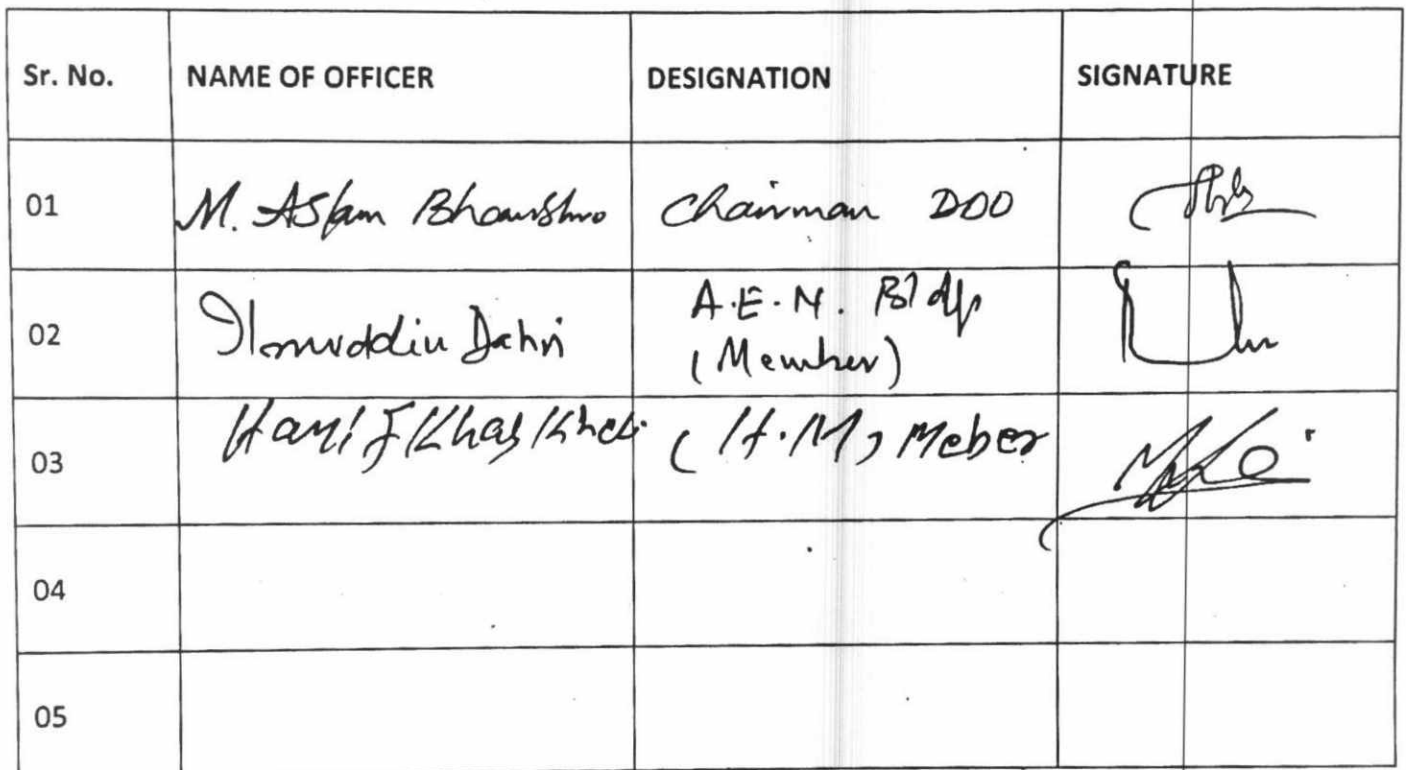 Sr. No. NAME OF OFFICER DESIGNATION SIGNATURE
01 M. Aslam Chairman DOO
02 Dahri A.E.N. Bldg
(Member)
03 Hanif Khaskheli (H.M) Meber
04
05